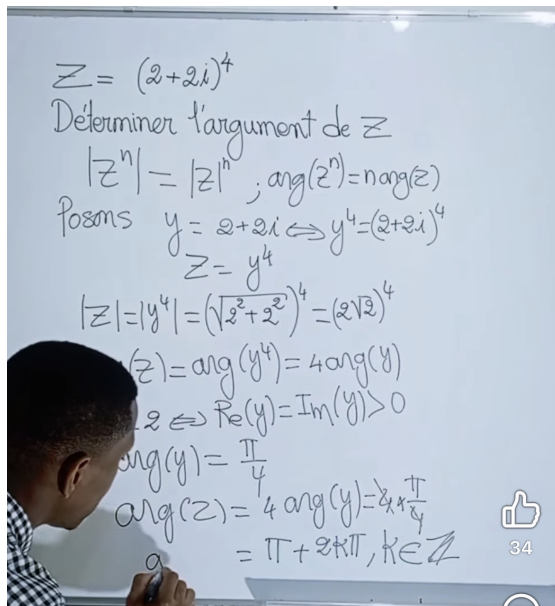 Z = (2+2i)^4
Déterminer l'argument de Z
|z^n| = |z|^n ; arg(z^n) = n arg(z)
Posons y = 2+2i ⇔ y^4 = (2+2i)^4
Z = y^4
|Z| = |y^4| = (√(2²+2²))^4 = (2√2)^4
(Z) = arg(y^4) = 4 arg(y)
2 ⇔ Re(y) = Im(y) > 0
arg(y) = π/4
arg(z) = 4 arg(y) = 4 × π/4
= π + 2kπ, k ∈ ℤ
34